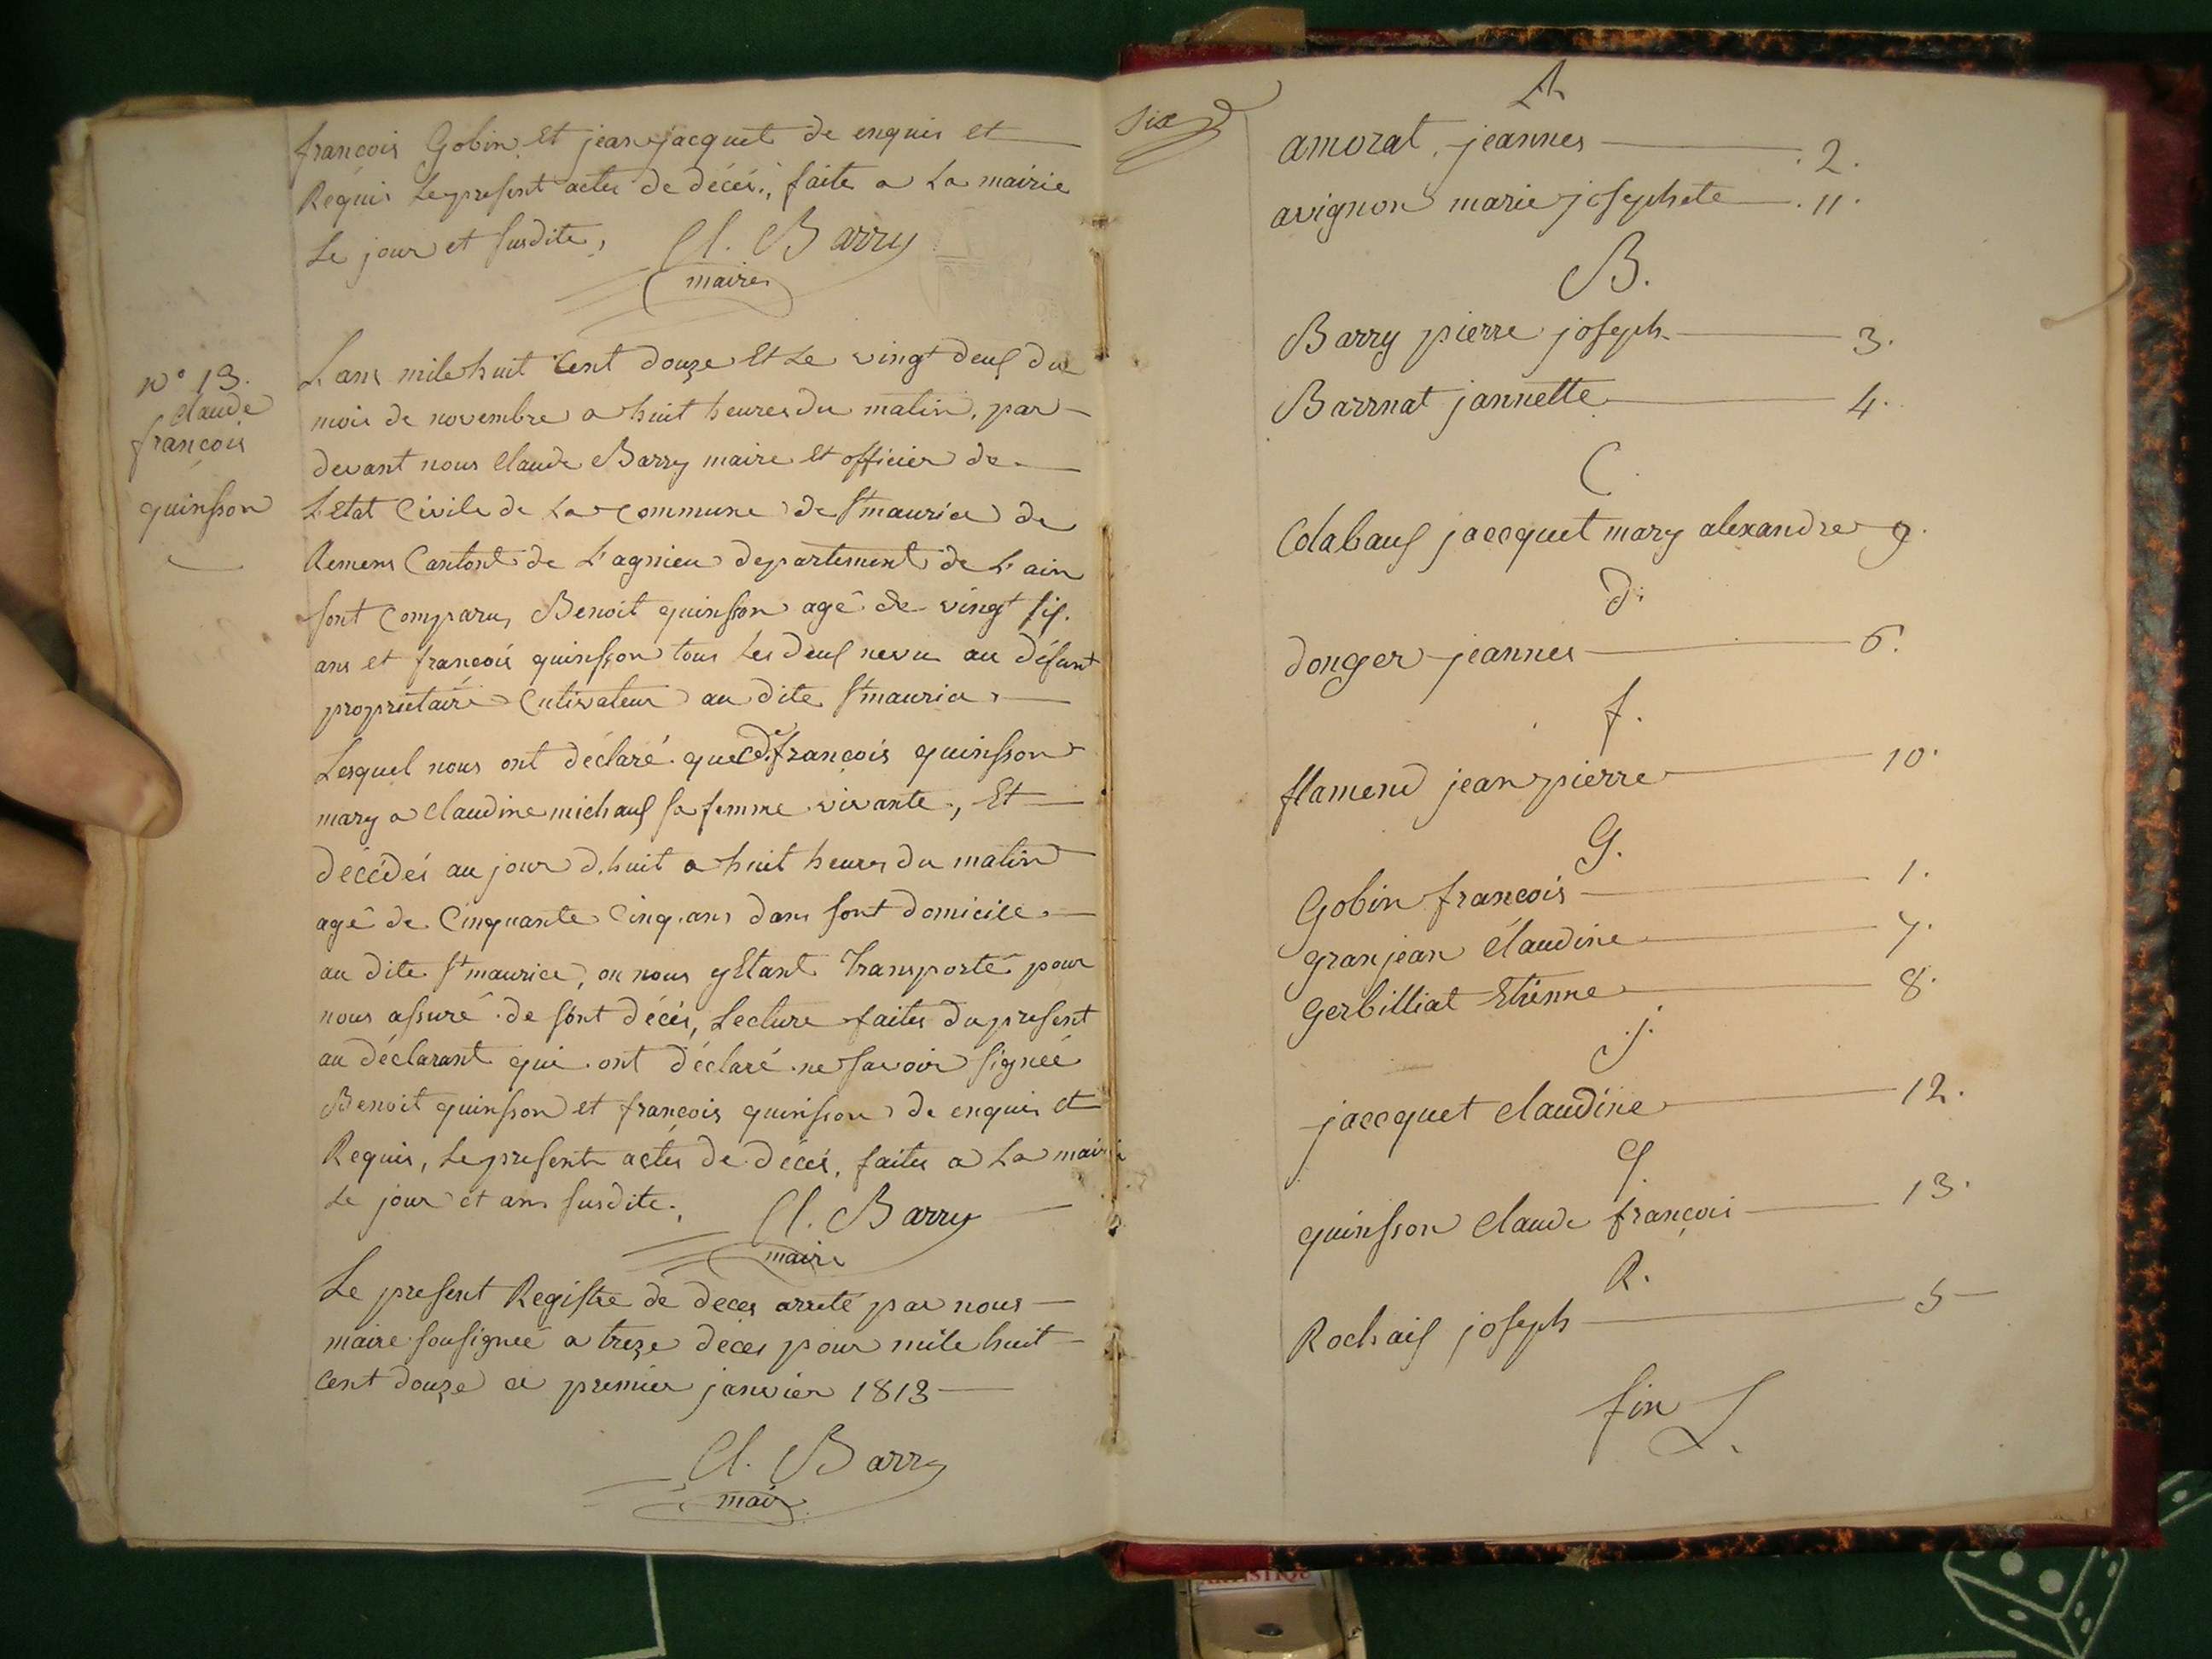 françois Gobin Et jean jacquet de enquis et
Requis Le present actes de décés, faite a La mairie
Le jour et susdite, Cl. Barry
maire
n° 13.
claude
françois
quinsson
L'ans mile huit Cent douze Et Le vingt deux du
mois de novembre a huit heures du matin, par
devant nous Claude Barry maire Et officier de
L'Etat Civile de La commune de St maurice de
Remens Cantont de L'agnieu departement de L'ain
sont comparus Benoit quinsson agé de vingt six
ans et françois quinsson tous Les deux nevu au défunt
propriétaire Cutivateur au dite St maurice,
Lesquel nous ont déclaré que Cde françois quinsson
mary a Claudine michaux sa femme vivante, Et
décédés au jour d'huit a huit heures du matin
agé de Cinquante Cinq ans dans sont domicile
au dite St maurice, ou nous y Etant Transporté pour
nous assuré de sont décés, Lecture faites du present
au déclarant qui ont déclaré ne savoir signée
Benoit quinsson et françois quinsson de enquis et
Requis, Le present actes de décés, faites a La mairi
Le jour et ans susdite. Cl. Barry
maire
Le present Registre de deces arreté par nous
maire sousignée a treze déces pour mile huit
Cent douze ce premier janvier 1813
Cl. Barry
maire
Six
A
amorat jeannes 2.
avignon marie josephete 11.
B.
Barry pierre joseph 3.
Barrnat jannette 4.
C.
Colabaux jaccquet mary alexandre 9.
d.
donger jeannes 6.
f.
flamend jean pierre 10.
G.
Gobin françois 1.
granjean claudine 7.
gerbilliat Etienne 8.
j.
jaccquet claudine 12.
q.
quinsson claude françois 13.
R.
Rochaix joseph 5
fin